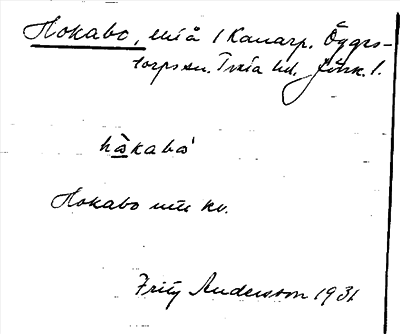 Hokabo, enst å 1 Kanarp. Öggrs-
torps sn. Tveta hd. Jönk. l.
håkabó
Hokabo
Fritz Andersson 1931